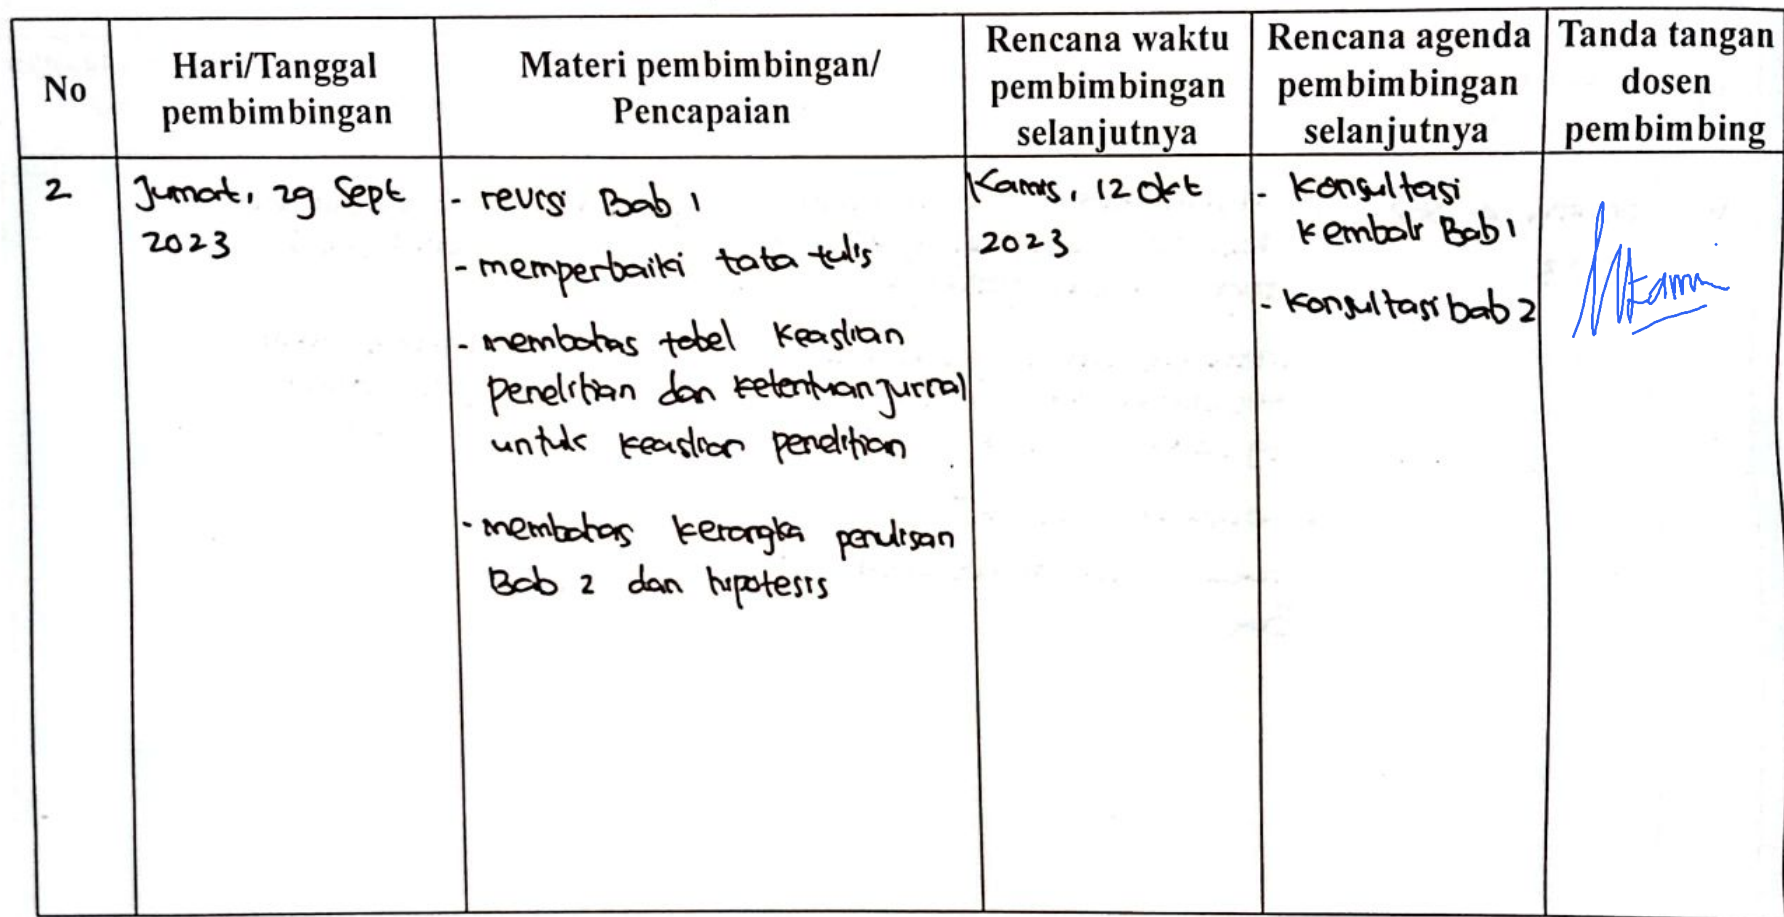 No
Hari/Tanggal
pembimbingan
Materi pembimbingan/
Pencapaian
Rencana waktu
pembimbingan
selanjutnya
Rencana agenda
pembimbingan
selanjutnya
Tanda tangan
dosen
pembimbing
2
Jumat, 29 Sept
2023
- revisi Bab 1
- memperbaiki tata tulis
- membahas tabel keaslian
penelitian dan ketentuan jurnal
untuk keaslian penelitian
- membahas kerangka penulisan
Bab 2 dan hipotesis
Kamis, 12 okt
2023
- konsultasi
kembali Bab 1
- konsultasi bab 2